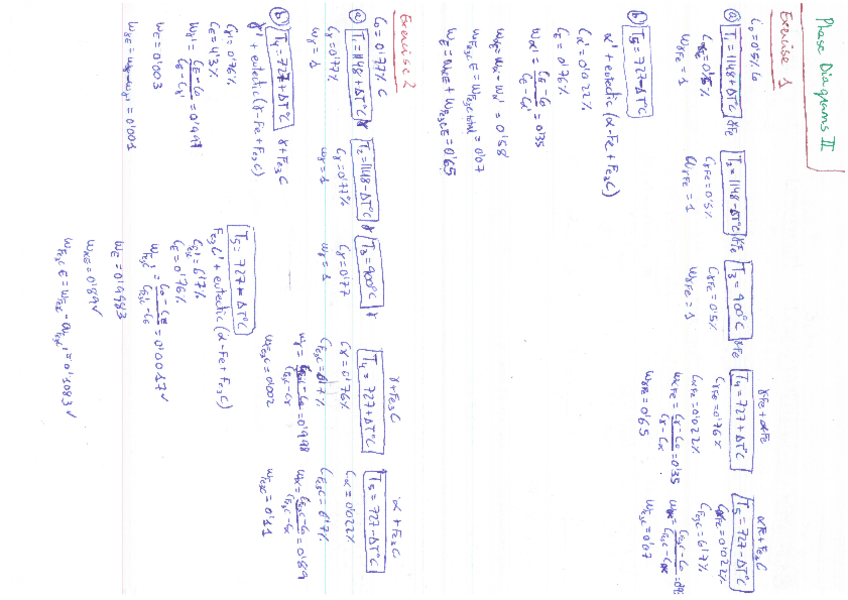 Phase Diagrams II
Exercise 1
C₀ = 0'5% C
ⓐ T₁ = 1148 + ΔT°C γFe
CγFe = 0'5%
wγFe = 1
T₂ = 1148 - ΔT°C γFe
CγFe = 0'5%
wγFe = 1
T₃ = 900°C γFe
CγFe = 0'5%
wγFe = 1
γFe + αFe
T₄ = 727 + ΔT°C
CγFe = 0'76%
CαFe = 0'022%
wαFe = Cγ - C₀ / Cγ - Cα = 0'35
wγFe = 0'65
αFe + Fe₃C
T₅ = 727 - ΔT°C
CαFe = 0'022%
CFe₃C = 6'7%
wα = CFe₃C - C₀ / CFe₃C - Cα
wFe₃C = 0'07
ⓑ T₅ = 727 - ΔT°C
α' + eutectic (α-Fe + Fe₃C)
Cα' = 0'022%
CE = 0'76%
wα' = CE - C₀ / CE - Cα' = 0'35
wα - wα' = 0'58
wFe₃C E = 0'07
wE = wαE + wFe₃C E = 0'65
Exercise 2
C₀ = 0'77% C
ⓐ T₁ = 1148 + ΔT°C γ
Cγ = 0'77%
wγ = 1
T₂ = 1148 - ΔT°C γ
Cγ = 0'77%
wγ = 1
T₃ = 900°C γ
Cγ = 0'77
wγ = 1
γ + Fe₃C
T₄ = 727 + ΔT°C
Cγ = 0'76%
CFe₃C = 6'7%
wγ = CFe₃C - C₀ / CFe₃C - Cγ = 0'998
wFe₃C = 0'002
α + Fe₃C
T₅ = 727 - ΔT°C
Cα = 0'022%
CFe₃C = 6'7%
wα = CFe₃C - C₀ / CFe₃C - Cα = 0'89
wFe₃C = 0'11
ⓑ T₄ = 727 + ΔT°C γ + Fe₃C
γ' + eutectic (γ-Fe + Fe₃C)
Cγ' = 0'76%
CE = 4'3%
wγ' = CE - C₀ / CE - Cγ' = 0'997
wE = 0'003
T₅ = 727 - ΔT°C
Fe₃C' + eutectic (α-Fe + Fe₃C)
CFe₃C' = 6'7%
CE = 0'76%
wFe₃C' = C₀ - CE / CFe₃C' - CE = 0'0017 ✓
wE = 0'9983
wαE = 0'89 ✓
wFe₃C E = wFe₃C - wFe₃C' = 0'1083 ✓